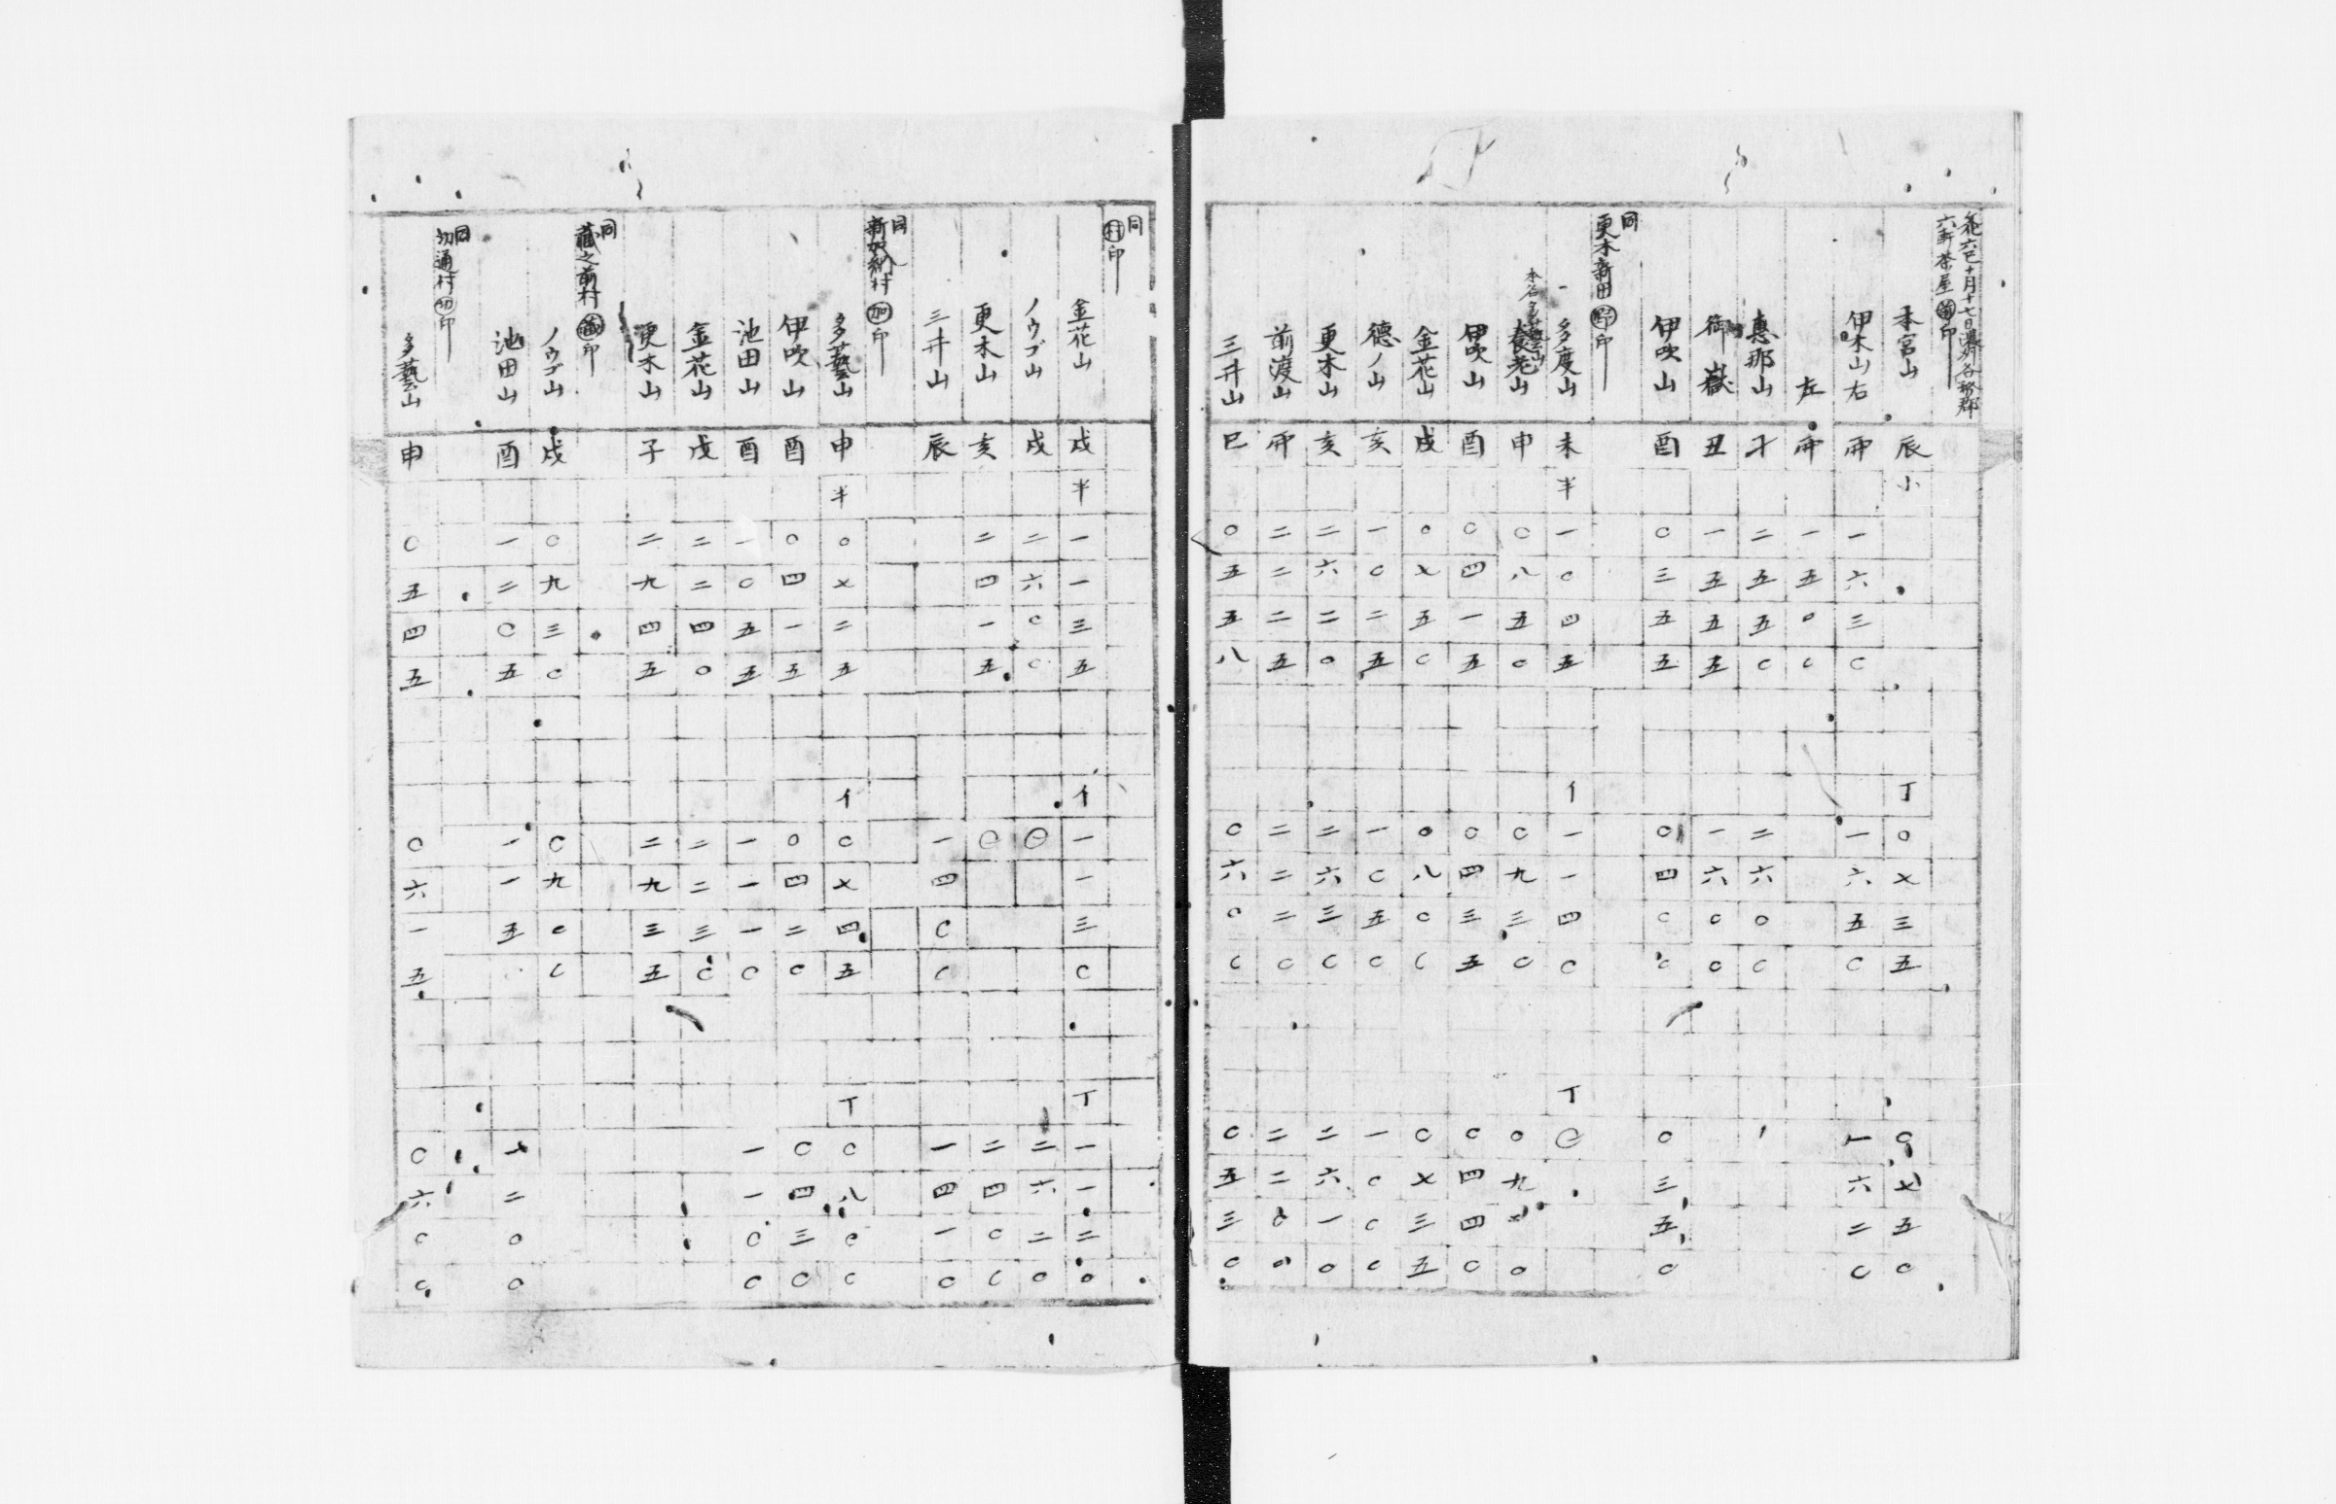 六軒茶屋 印
本宮山 辰 小 丁 〇 七 三 五 〇 七 五 〇
伊木山右 卯 一 六 三 〇 一 六 五 〇 一 六 二 〇
左 卯 一 五 〇 〇
恵那山 子 二 五 五 〇 二 六 〇 〇
御嶽 丑 一 五 五 五 一 六 〇 〇
伊吹山 酉 〇 三 五 五 〇 四 〇 〇 〇 三 五 〇
同
更木新田 野印
多度山 未 半 一 〇 四 五 イ 一 一 四 〇 丁 〇
本名多藝山
養老山 申 〇 八 五 〇 〇 九 三 〇 〇 九 〇
伊吹山 酉 〇 四 一 五 〇 四 三 五 〇 四 四 〇
金花山 戌 〇 七 五 〇 〇 八 〇 〇 〇 七 三 五
徳ノ山 亥 一 〇 二 五 一 〇 五 〇 一 〇 〇 〇
更木山 亥 二 六 二 〇 二 六 三 〇 二 六 一 〇
前渡山 卯 二 二 二 五 二 二 二 〇 二 二 〇 〇
三井山 巳 〇 五 五 八 〇 六 〇 〇 〇 五 三 〇
同
村印
金花山 戌 半 一 一 三 五 イ 一 一 三 〇 丁 一 一 二 〇
ノウゴ山 戌 二 六 〇 〇 〇 二 六 二 〇
更木山 亥 二 四 一 五 〇 二 四 〇 〇
三井山 辰 一 四 〇 〇 一 四 一 〇
同
新加納村 加印
多藝山 申 半 〇 七 二 五 イ 〇 七 四 五 丁 〇 八 〇 〇
伊吹山 酉 〇 四 一 五 〇 四 二 〇 〇 四 三 〇
池田山 酉 一 〇 五 五 一 一 一 〇 一 一 〇 〇
金花山 戌 二 二 四 〇 二 二 三 〇
更木山 子 二 九 四 五 二 九 三 五
同
蔵之前村 蔵印
ノウゴ山 戌 〇 九 三 〇 〇 九 〇 〇
池田山 酉 一 二 〇 五 一 一 五 一 二 〇 〇
同
切通村 切印
多藝山 申 〇 五 四 五 〇 六 一 五 〇 六 〇 〇